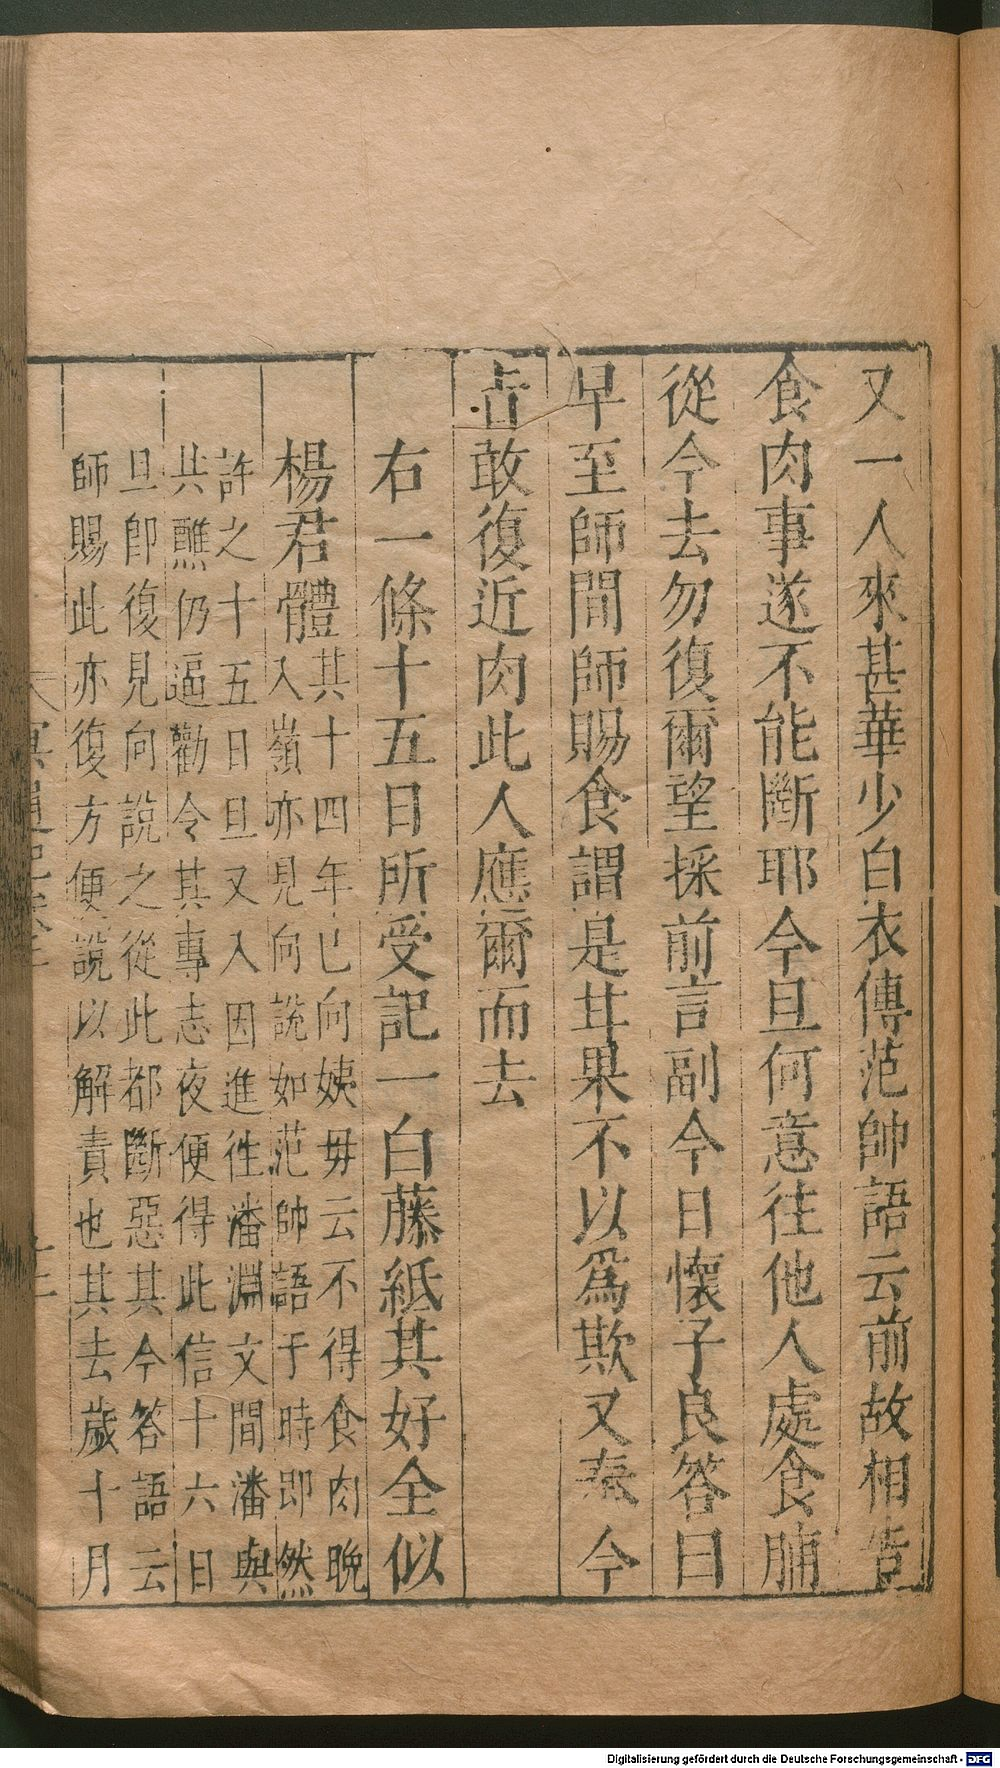 又一人來甚華少白衣傳范帥語云前故相告
食肉事遂不能斷耶今旦何意往他人處食脯
從今去勿復爾望採前言副今日懷子良答曰
早至師間師賜食謂是甘果不以爲欺又奉今
吿敢復近肉此人應爾而去
右一條十五日所受記一白藤紙其好全似
楊君體
其十四年已向姨毋云不得食肉晚
入嶺亦見向說如范帥語于時即然
許之十五日旦又入因進往潘淵文間潘與
共醮仍逼勸令其專志夜便得此信十六日
旦卽復見向說之從此都斷惡其今答語云
師賜此亦復方便說以解責也其去歲十月
冥通記卷
Digitalisierung gefördert durch die Deutsche Forschungsgemeinschaft - DFG